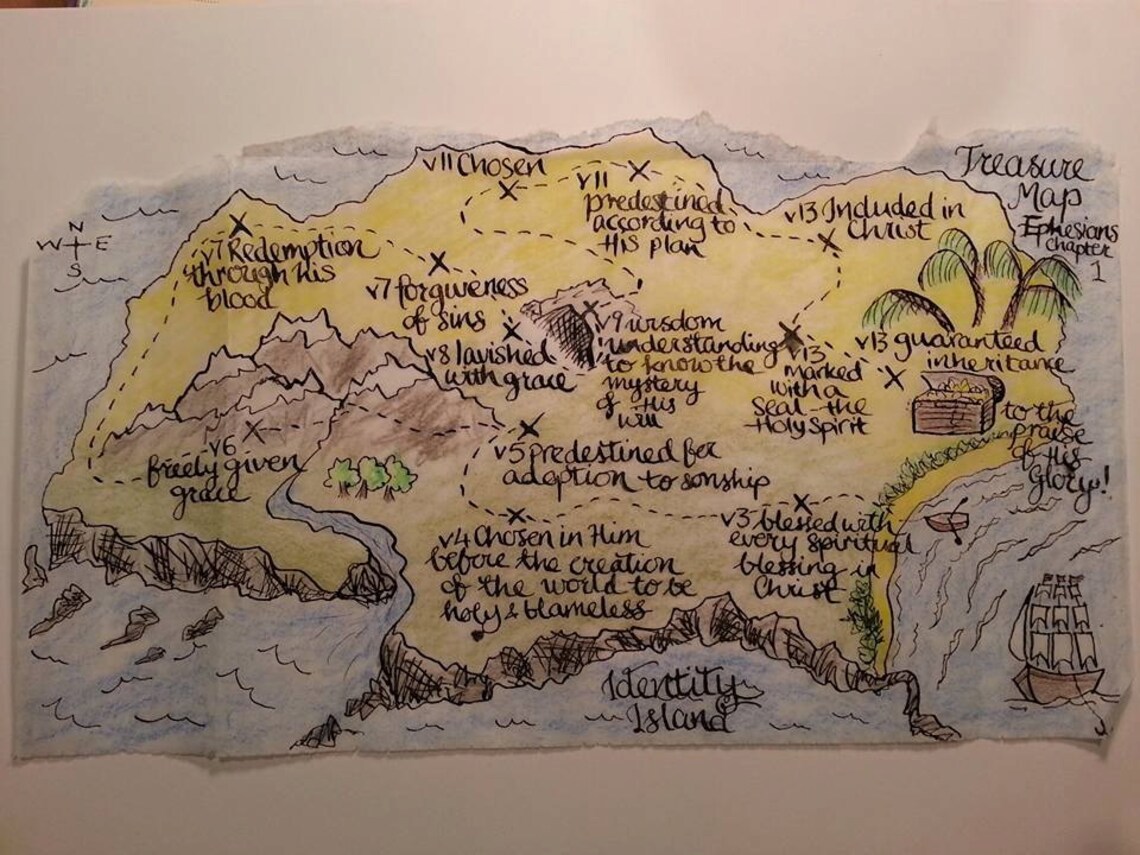 Treasure
Map
Ephesians
chapter
1
N
W E
S
v11 Chosen
v11
predestined
according to
His plan
v13 Included in
Christ
v7 Redemption
through his
blood
v7 forgiveness
of sins
v8 lavished
with grace
v9 wisdom
understanding
to know the
mystery
of His
will
v13
marked
with a
seal-the
Holy Spirit
v13 guaranteed
inheritance
to the
praise
of His
Glory!
v6
freely given
grace
v5 predestined for
adoption to sonship
v4 Chosen in Him
before the creation
of the world to be
holy & blameless
v3 blessed with
every spiritual
blessing in
Christ
Identity
Island